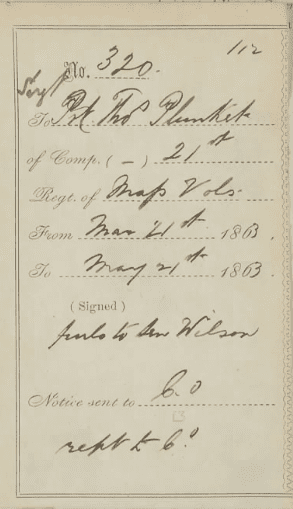 112
No. 320.
Sergt
To Pvt Thos Plunket
of Comp. ( – ) 21st
Regt. of Mass Vols.
From Mar 21st 1863.
To May 21st 1863.
(Signed)
furlo to Sen Wilson
Notice sent to C.O
13
rept to Co.